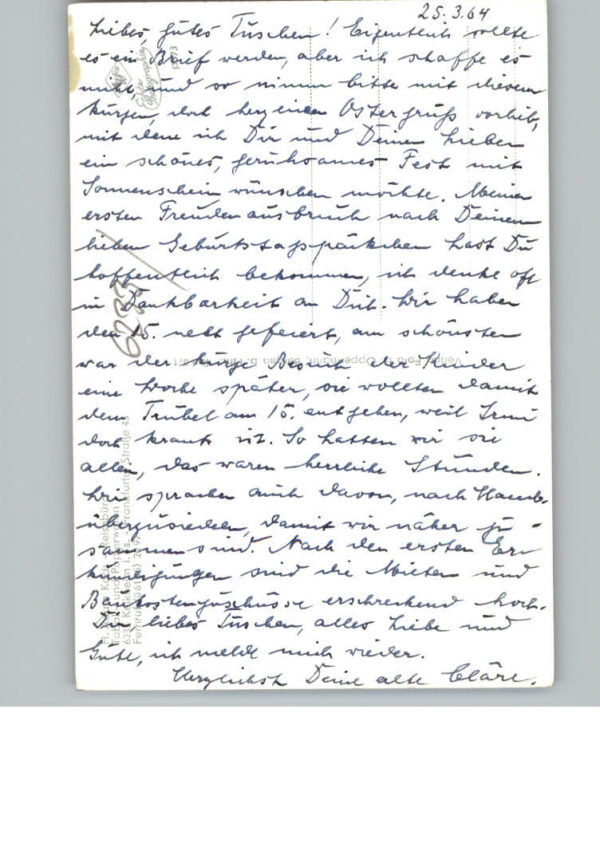 25.3.64
Liebes, gutes Tuschen! Eigentlich sollte
es ein Brief werden, aber ich schaffe es
nicht, und so nimm bitte mit diesem
kurzen, doch herzlichen Ostergruß vorlieb,
mit dem ich Dir und Deinen Lieben
ein schönes, geruhsames Fest mit
Sonnenschein wünschen möchte. Meinen
ersten Freudenausbruch nach Deinem
lieben Geburtstagspäckchen hast Du
hoffentlich bekommen, ich denke oft
in Dankbarkeit an Dich. Wir haben
den 15. nett gefeiert, am schönsten
war der kurze Besuch der Kinder
eine Woche später, sie wollten damit
dem Trubel am 15. entgehen, weil Irmi
doch krank ist. So hatten wir sie
allein, das waren herrliche Stunden.
Wir sprachen auch davon, nach Hamb.
überzusiedeln, damit wir näher zu-
sammen sind. Nach den ersten Er-
kundigungen sind die Mieten und
Baukostenzuschüsse erschreckend hoch.
Dir, liebes Tuschen, alles Liebe und
Gute, ich melde mich wieder.
Herzlichst Deine alte Cläre.